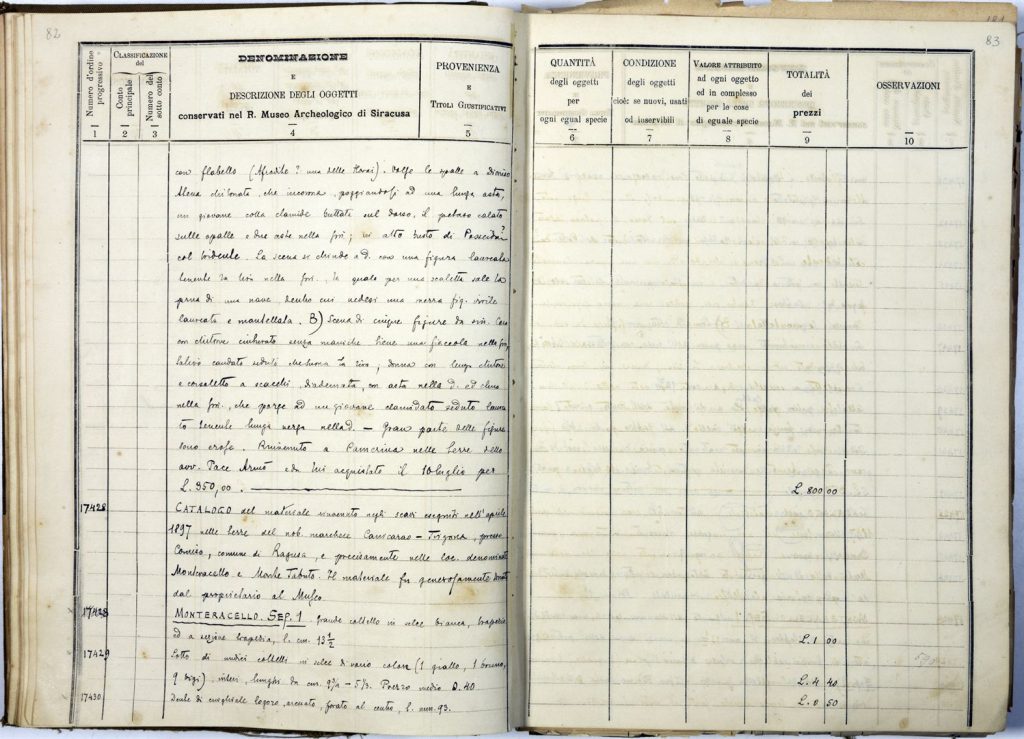 82
Numero d'ordine progressivo
1
CLASSIFICAZIONE
del
Conto principale
2
Numero del sotto conto
3
DENOMINAZIONE
E
DESCRIZIONE DEGLI OGGETTI
conservati nel R. Museo Archeologico di Siracusa
4
PROVENIENZA
E
TITOLI GIUSTIFICATIVI
5
con flabello (Afrodite? una delle Horai). Volge le spalle a Dioniso
Atena chitonata che incorona, poggiandosi ad una lunga asta,
un giovane colla clamide buttata sul dorso, il petaso calato
sulle spalle e due aste nella sin; in alto busto di Poseidon?
col tridente. La scena si chiude a d. con una figura laureata
tenente nella sin., la quale per una scaletta sale la
prua di una nave, dentro cui vedesi una mezza fig. virile
laureata e mantellata. B) Scena di cinque figure da sin.
con chitone senza maniche tiene una fiaccola nella sin,
Satiro caudato seduto la lira; donna con lungo chitone
e corsaletto a scacchi, diademata, con asta nella d. ed elmo
nella sin., che porge ad un giovane clamidato seduto laurea
to tenente lunga verga nella d. — Gran parte delle figure
sono erose. Rinvenuto a Camerina nelle terre dello
avv. Pace e da lui acquistato il 10 luglio per
L. 950,00.
17428
CATALOGO del materiale rinvenuto negli scavi eseguiti nell'aprile
1897 nelle terre del nob. marchese Canicarao - Trigona, presso
Comiso, comune di Ragusa, e precisamente nelle loc. denominate
Monteracello e Monte Tabuto. Il materiale fu generosamente donato
dal proprietario al Museo.
17428
MONTERACELLO. SEP. 1 grande coltello in selce bianca,
ed a sezione trapezia, l. cm. 13 1/2
17429
Lotto di undici coltelli in selce di vario colore (1 giallo, 1 bruno,
9 bigi), interi, lunghi da cm. 9 3/4 - 5 1/3. Prezzo medio 0.40
17430
Dente di cinghiale logoro, arcuato, forato al centro, l. mm. 93.
83
QUANTITÀ
degli oggetti
per
ogni egual specie
6
CONDIZIONE
degli oggetti
cioè: se nuovi, usati
od inservibili
7
VALORE ATTRIBUITO
ad ogni oggetto
ed in complesso
per le cose
di eguale specie
8
TOTALITÀ
dei
prezzi
9
OSSERVAZIONI
10
L. 800 00
L. 1 00
L. 4 40
L. 0 50